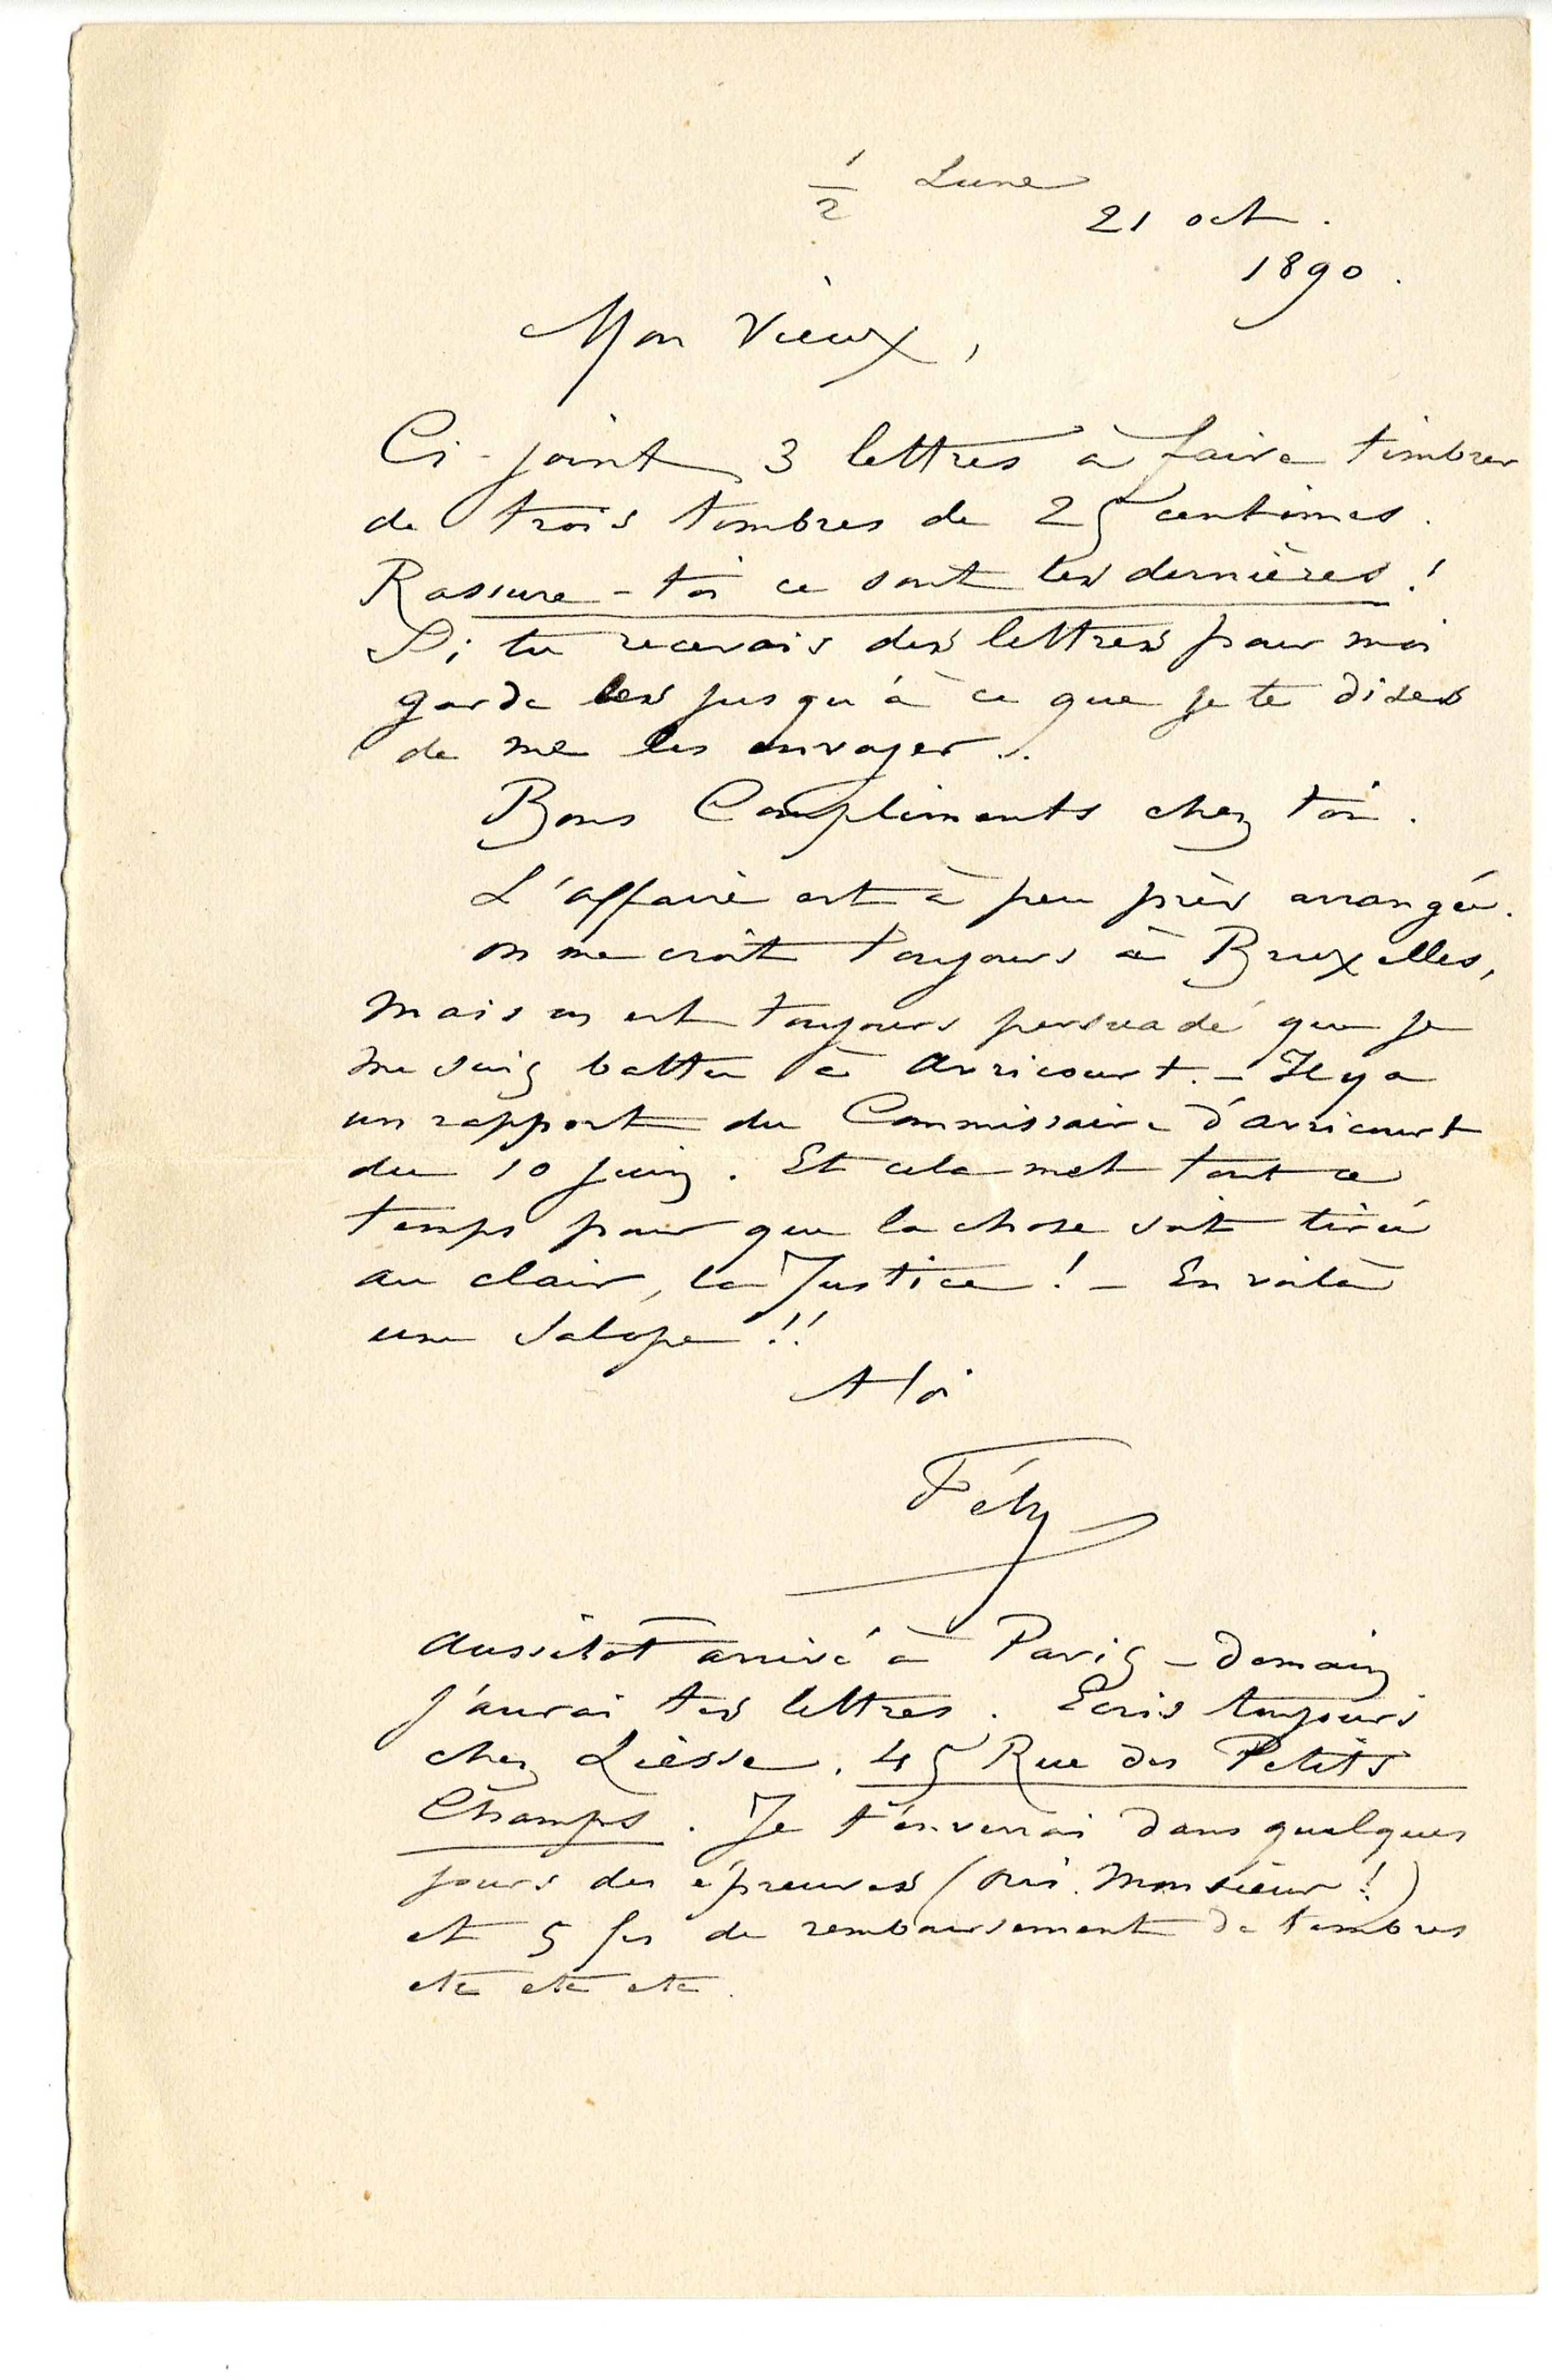 1/2 Lune
21 oct.
1890.
Mon Vieux,
Ci-joint 3 lettres à faire timbrer
de trois timbres de 25 centimes.
Rassure-toi ce sont les dernières !
Si tu recevais des lettres pour moi
garde les jusqu'à ce que je te dises
de me les envoyer..
Bons Compliments chez toi.
L'affaire est à peu près arrangée.
on me croit toujours à Bruxelles,
mais on est toujours persuadé que je
me suis battu à Avricourt. – Il y a
un rapport du Commissaire d'Avricourt
du 10 juin. Et cela met tout ce
temps pour que la chose soit tirée
au clair, la Justice ! – En voilà
une Salope !!
A toi
Fély
Aussitôt arrivé à Paris – demain
j'aurai tes lettres. Ecris toujours
chez Liesse, 45 Rue des Petits
Champs. Je t'enverrai dans quelques
jours des épreuves (oui Monsieur !)
et 5 frs de remboursement de timbres
etc etc etc.